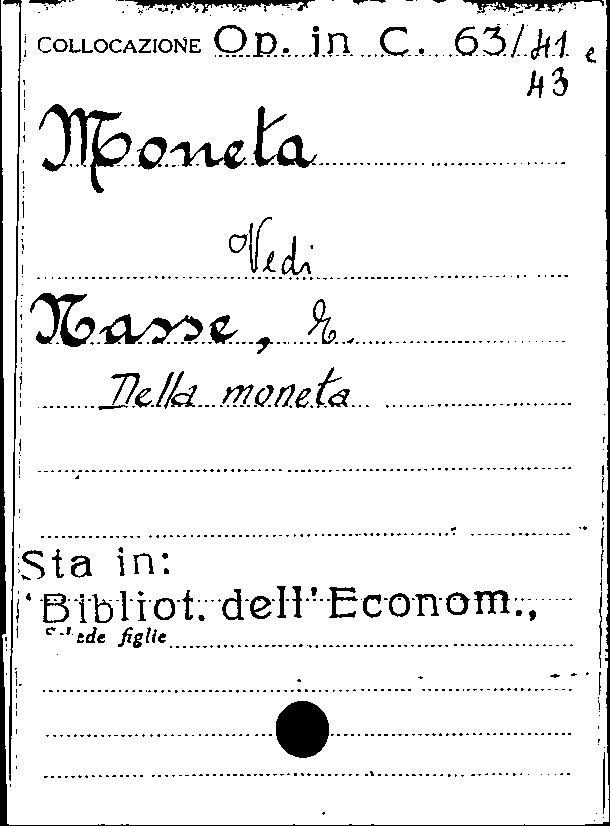 COLLOCAZIONE Op. in C. 63/41 e
43
Moneta
Vedi
Nasse, E.
Della moneta
Sta in:
"Bibliot. dell'Econom.,
Schede figlie